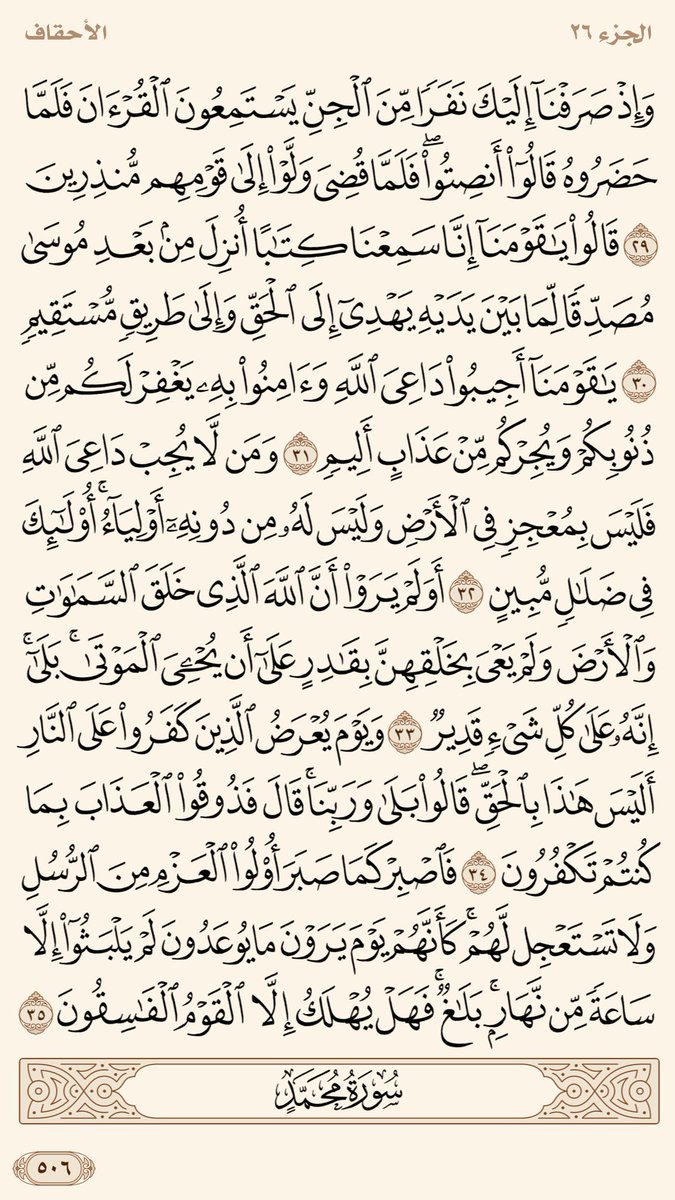 الجزء ٢٦
الأحقاف
وَإِذْ صَرَفْنَآ إِلَيْكَ نَفَرًا مِّنَ ٱلْجِنِّ يَسْتَمِعُونَ ٱلْقُرْءَانَ فَلَمَّا
حَضَرُوهُ قَالُوٓا۟ أَنصِتُوا۟ ۖ فَلَمَّا قُضِىَ وَلَّوْا۟ إِلَىٰ قَوْمِهِم مُّنذِرِينَ
٢٩ قَالُوا۟ يَٰقَوْمَنَآ إِنَّا سَمِعْنَا كِتَٰبًا أُنزِلَ مِنۢ بَعْدِ مُوسَىٰ
مُصَدِّقًا لِّمَا بَيْنَ يَدَيْهِ يَهْدِىٓ إِلَى ٱلْحَقِّ وَإِلَىٰ طَرِيقٍ مُّسْتَقِيمٍ
٣٠ يَٰقَوْمَنَآ أَجِيبُوا۟ دَاعِىَ ٱللَّهِ وَءَامِنُوا۟ بِهِۦ يَغْفِرْ لَكُم مِّن
ذُنُوبِكُمْ وَيُجِرْكُم مِّنْ عَذَابٍ أَلِيمٍ ٣١ وَمَن لَّا يُجِبْ دَاعِىَ ٱللَّهِ
فَلَيْسَ بِمُعْجِزٍ فِى ٱلْأَرْضِ وَلَيْسَ لَهُۥ مِن دُونِهِۦٓ أَوْلِيَآءُ ۚ أُو۟لَٰٓئِكَ
فِى ضَلَٰلٍ مُّبِينٍ ٣٢ أَوَلَمْ يَرَوْا۟ أَنَّ ٱللَّهَ ٱلَّذِى خَلَقَ ٱلسَّمَٰوَٰتِ
وَٱلْأَرْضَ وَلَمْ يَعْىَ بِخَلْقِهِنَّ بِقَٰدِرٍ عَلَىٰٓ أَن يُحْۦِىَ ٱلْمَوْتَىٰ ۚ بَلَىٰٓ ۚ
إِنَّهُۥ عَلَىٰ كُلِّ شَىْءٍ قَدِيرٌ ٣٣ وَيَوْمَ يُعْرَضُ ٱلَّذِينَ كَفَرُوا۟ عَلَى ٱلنَّارِ
أَلَيْسَ هَٰذَا بِٱلْحَقِّ ۖ قَالُوا۟ بَلَىٰ وَرَبِّنَا ۚ قَالَ فَذُوقُوا۟ ٱلْعَذَابَ بِمَا
كُنتُمْ تَكْفُرُونَ ٣٤ فَٱصْبِرْ كَمَا صَبَرَ أُو۟لُوا۟ ٱلْعَزْمِ مِنَ ٱلرُّسُلِ
وَلَا تَسْتَعْجِل لَّهُمْ ۚ كَأَنَّهُمْ يَوْمَ يَرَوْنَ مَا يُوعَدُونَ لَمْ يَلْبَثُوٓا۟ إِلَّا
سَاعَةً مِّن نَّهَارٍۭ ۚ بَلَٰغٌ ۚ فَهَلْ يُهْلَكُ إِلَّا ٱلْقَوْمُ ٱلْفَٰسِقُونَ ٣٥
سُورَةُ مُحَمَّدٍ
٥٠٦